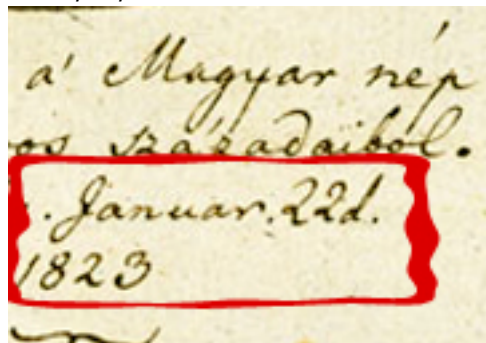 a' Magyar nép
századaiból.
Januar. 22d.
1823